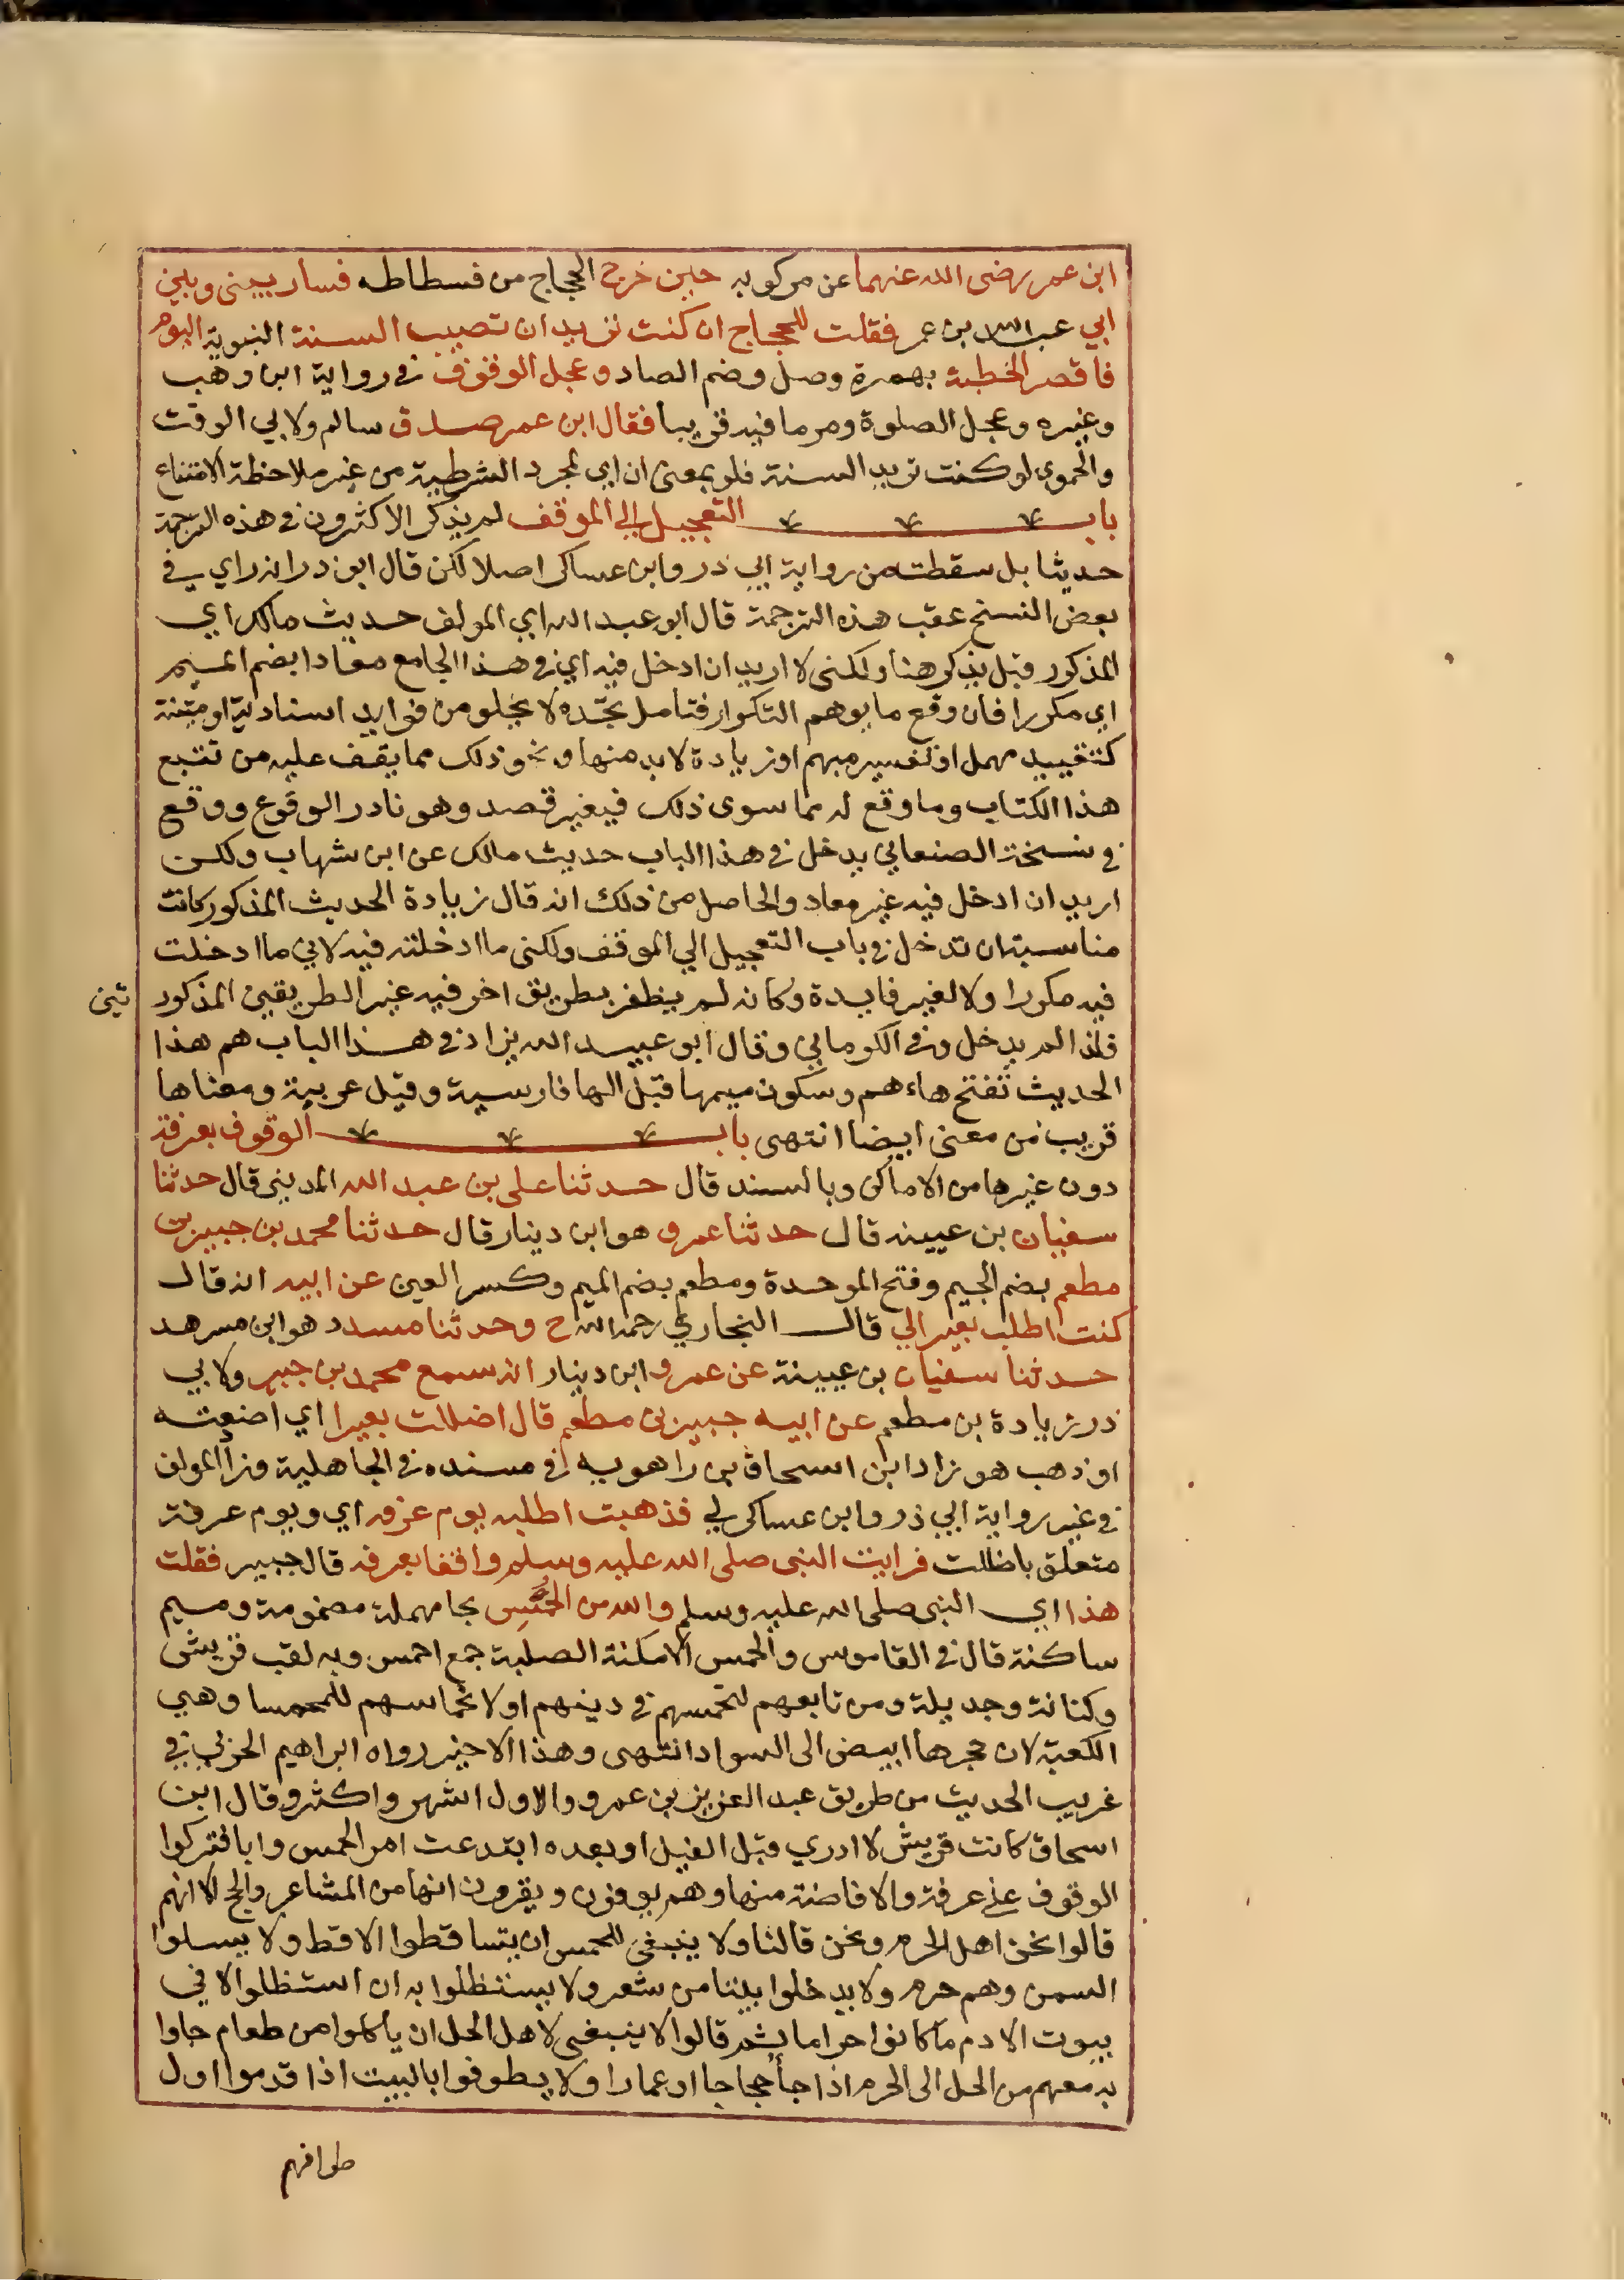 ابن عمر رضى الله عنهما عن مركوبه حين خرج الحجاج من فسطاطه فسار بينى وبين
ابي عبد الله بن عمر فقلت للحجاج ان كنت تريد ان تصيب السنة النبوية اليوم
فاقصر الخطبة بهمزة وصل وضم الصاد وعجل الوقوف في رواية ابن وهب
وغيره وعجل الصلوة ومر ما فيه قريبا فقال ابن عمر صدق سالم ولابي الوقت
والحموي لو كنت تريد السنة فلو بمعنى ان اي لمجرد الشرطية من غير ملاحظة الامتناع
باب التعجيل الى الموقف لم يذكر الاكثرون في هذه الترجمة
حديثا بل سقطت من رواية ابي ذر وابن عساكر اصلا لكن قال ابو ذر انه راي في
بعض النسخ عقب هذه الترجمة قال ابو عبد الله اي المولف حديث مالك اي
المذكور قبل يذكر هنا ولكنى لا اريد ان ادخل فيه اي في هذا الجامع معادا بضم الميم
اي مكررا فان وقع ما يوهم التكرار فتامل تجده لا يخلو من فوايد اسنادية او متنية
كتقييد مهمل او تفسير مبهم او زيادة لا بد منها ونحو ذلك مما يقف عليه من تتبع
هذا الكتاب وما وقع له مما سوى ذلك فبغير قصد وهو نادر الوقوع ووقع
في نسخة الصنعاني يدخل في هذا الباب حديث مالك عن ابن شهاب ولكن
اريد ان ادخل فيه غير معاد والحاصل من ذلك انه قال زيادة الحديث المذكور كانت
مناسبته ان تدخل في باب التعجيل الي الموقف ولكنى ما ادخلته فيه لاني ما ادخلت
فيه مكررا ولا لغير فايدة وكانه لم يظفر بطريق اخر فيه غير الطريقين المذكور
تين
فلذا لم يدخل وفي الكرماني وقال ابو عبيد الله يزاد في هذا الباب هم هذا
الحديث تفتح هاء هم وسكون ميمها قبل الها فارسية وقيل عربية ومعناها
قريب من معنى ايضا انتهى باب الوقوف بعرفة
دون غيرها من الاماكن وبالسند قال حدثنا على بن عبد الله المدينى قال حدثنا
سفيان بن عيينه قال حدثنا عمرو هو ابن دينار قال حدثنا محمد بن جبير بن
مطعم بضم الجيم وفتح الموحدة ومطعم بضم الميم وكسر العين عن ابيه انه قال
كنت اطلب بعيرا لي قال البخاري رحمه الله ح وحدثنا مسدد هو ابن مسرهد
حدثنا سفيان بن عيينة عن عمرو ابن دينار انه سمع محمد بن جبير ولابي
ذر زيادة بن مطعم عن ابيه جبير بن مطعم قال اضللت بعيرا اي اضعته
او ذهب هو زاد ابن اسحاق بن راهويه في مسنده في الجاهلية وزاد المولف
في غير رواية ابي ذر وابن عساكر لي فذهبت اطلبه يوم عرفه اي ويوم عرفة
متعلق باضللت فرايت النبى صلى الله عليه وسلم واقفا بعرفه قال جبير فقلت
هذا اي النبى صلى الله عليه وسلم والله من الحُمْسِ بحا مهملة مضمومة وميم
ساكنة قال في القاموس والحمس الامكنة الصلبة جمع احمس وبه لقب قريش
وكنانة وجديلة ومن تابعهم لتحمسهم في دينهم او لالتحاسهم للحمسا وهي
الكعبة لان حجرها ابيض الى السواد انتهى وهذا الاخير رواه ابراهيم الحربي في
غريب الحديث من طريق عبد العزيز بن عمرو والاول اشهر واكثر وقال ابن
اسحاق كانت قريش لا ادري قبل الفيل او بعده ابتدعت امر الحمس رايا فتركوا
الوقوف على عرفة والافاضة منها وهم يعرفون ويقرون انها من المشاعر والحج الا انهم
قالوا نحن اهل الحرم ونحن قالنا ولا ينبغى للحمس ان يتساقطوا الاقط ولا يسلوا
السمن وهم حرم ولا يدخلوا بيتا من شعر ولا يستظلوا به ان استظلوا الا في
بيوت الادم ما كانوا حراما ثم قالوا لا ينبغى لاهل الحل ان ياكلوا من طعام جاوا
به معهم من الحل الى الحرم اذا جأ حجاجا او عمارا ولا يطوفوا بالبيت اذا قدموا اول
طوافهم